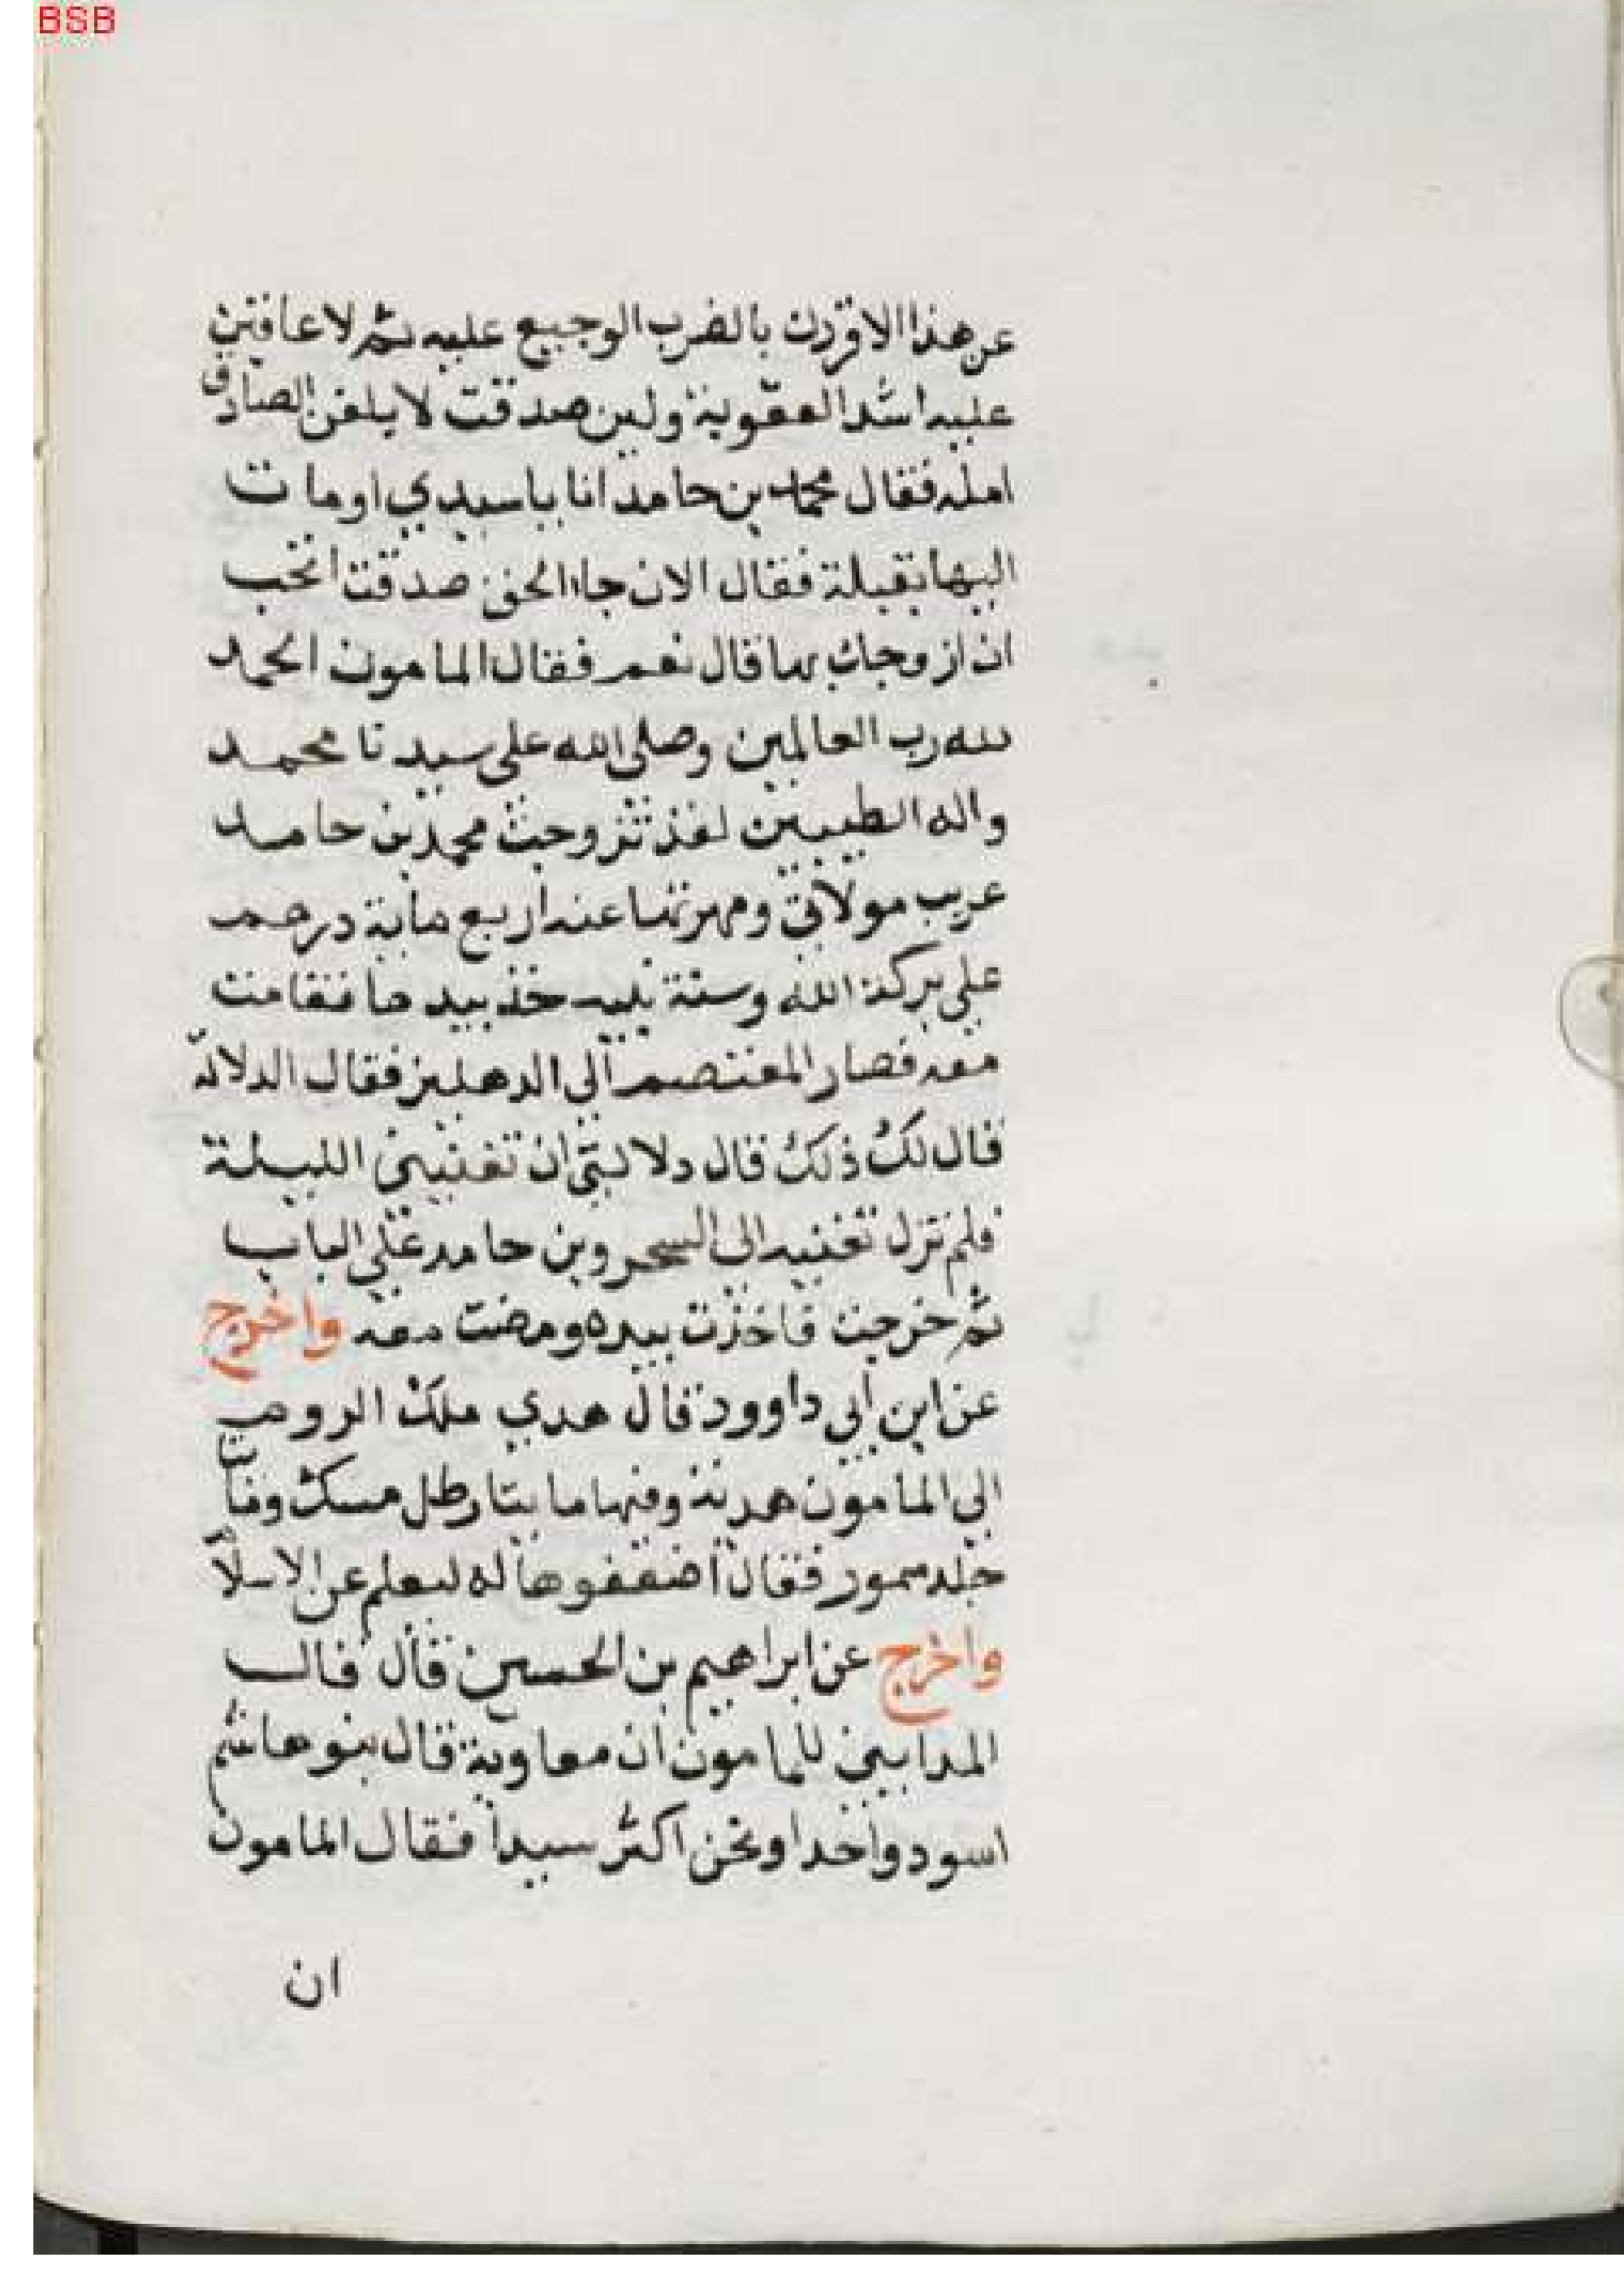 BSB
عن هذا لاقررن بالضرب الوجيع عليه ثم لاعاقبن
عليه اشد العقوبة ولين صدقت لابلغن الصادق
امله فقال محمد بن حامد انا ياسيدي اومات
اليها بقبلة فقال الان جاء الحق صدقت اتحب
ان ازوجك بها قال نعم فقال المامون الحمد
لله رب العالمين وصلى الله على سيدنا محمد
واله الطيبين لقد تزوجت محمد بن حامد
عريب مولاتي ومهرتها عنه اربع ماية درهم
على بركة الله وسنة نبيه خذ بيدها فقامت
معه فصار المعتصم الي الدهليز فقال الدلالة
قال لك ذلك قال دلالتي ان تغنيني الليلة
فلم تزل تغنيه الى السحر وبن حامد علي الباب
ثم خرجت فاخذت بيده ومضت معه واخرج
عن ابن ابي داوود قال هدي ملك الروم
الي المامون هدية وفيها مايتا رطل مسك ومايتا
جلد سمور فقال اضعفوها له ليعلم عز الاسلام
واخرج عن ابراهيم بن الحسين قال قال
المدايني للمامون ان معاوية قال بنو هاشم
اسود واحدا ونحن اكثر سيدا فقال المامون
ان